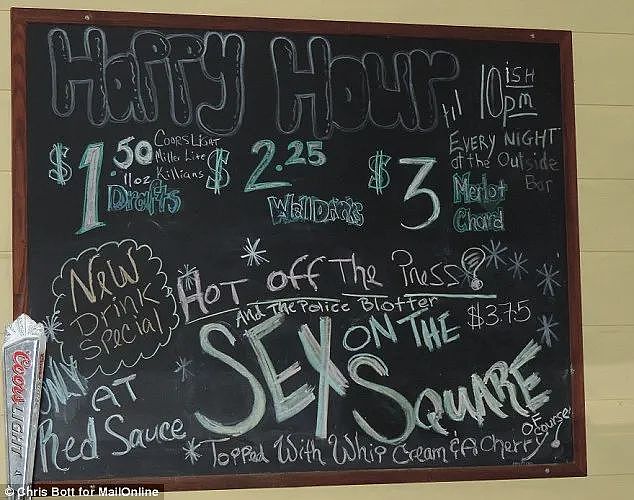 Happy Hour
til 10ish pm
$1.50 11oz Drafts
Coors Light
Miller Lite
Killians
$2.25 Well Drinks
$3 Merlot Chard
EVERY NIGHT
at the Outside
Bar
New
Drink
Special
Hot off The Press!
And The Police Blotter
SEX ON THE
SQUARE
$3.75
ONLY AT
Red Sauce
Topped With Whip Cream & A Cherry
OF Course
Coors LIGHT
© Chris Bott for MailOnline